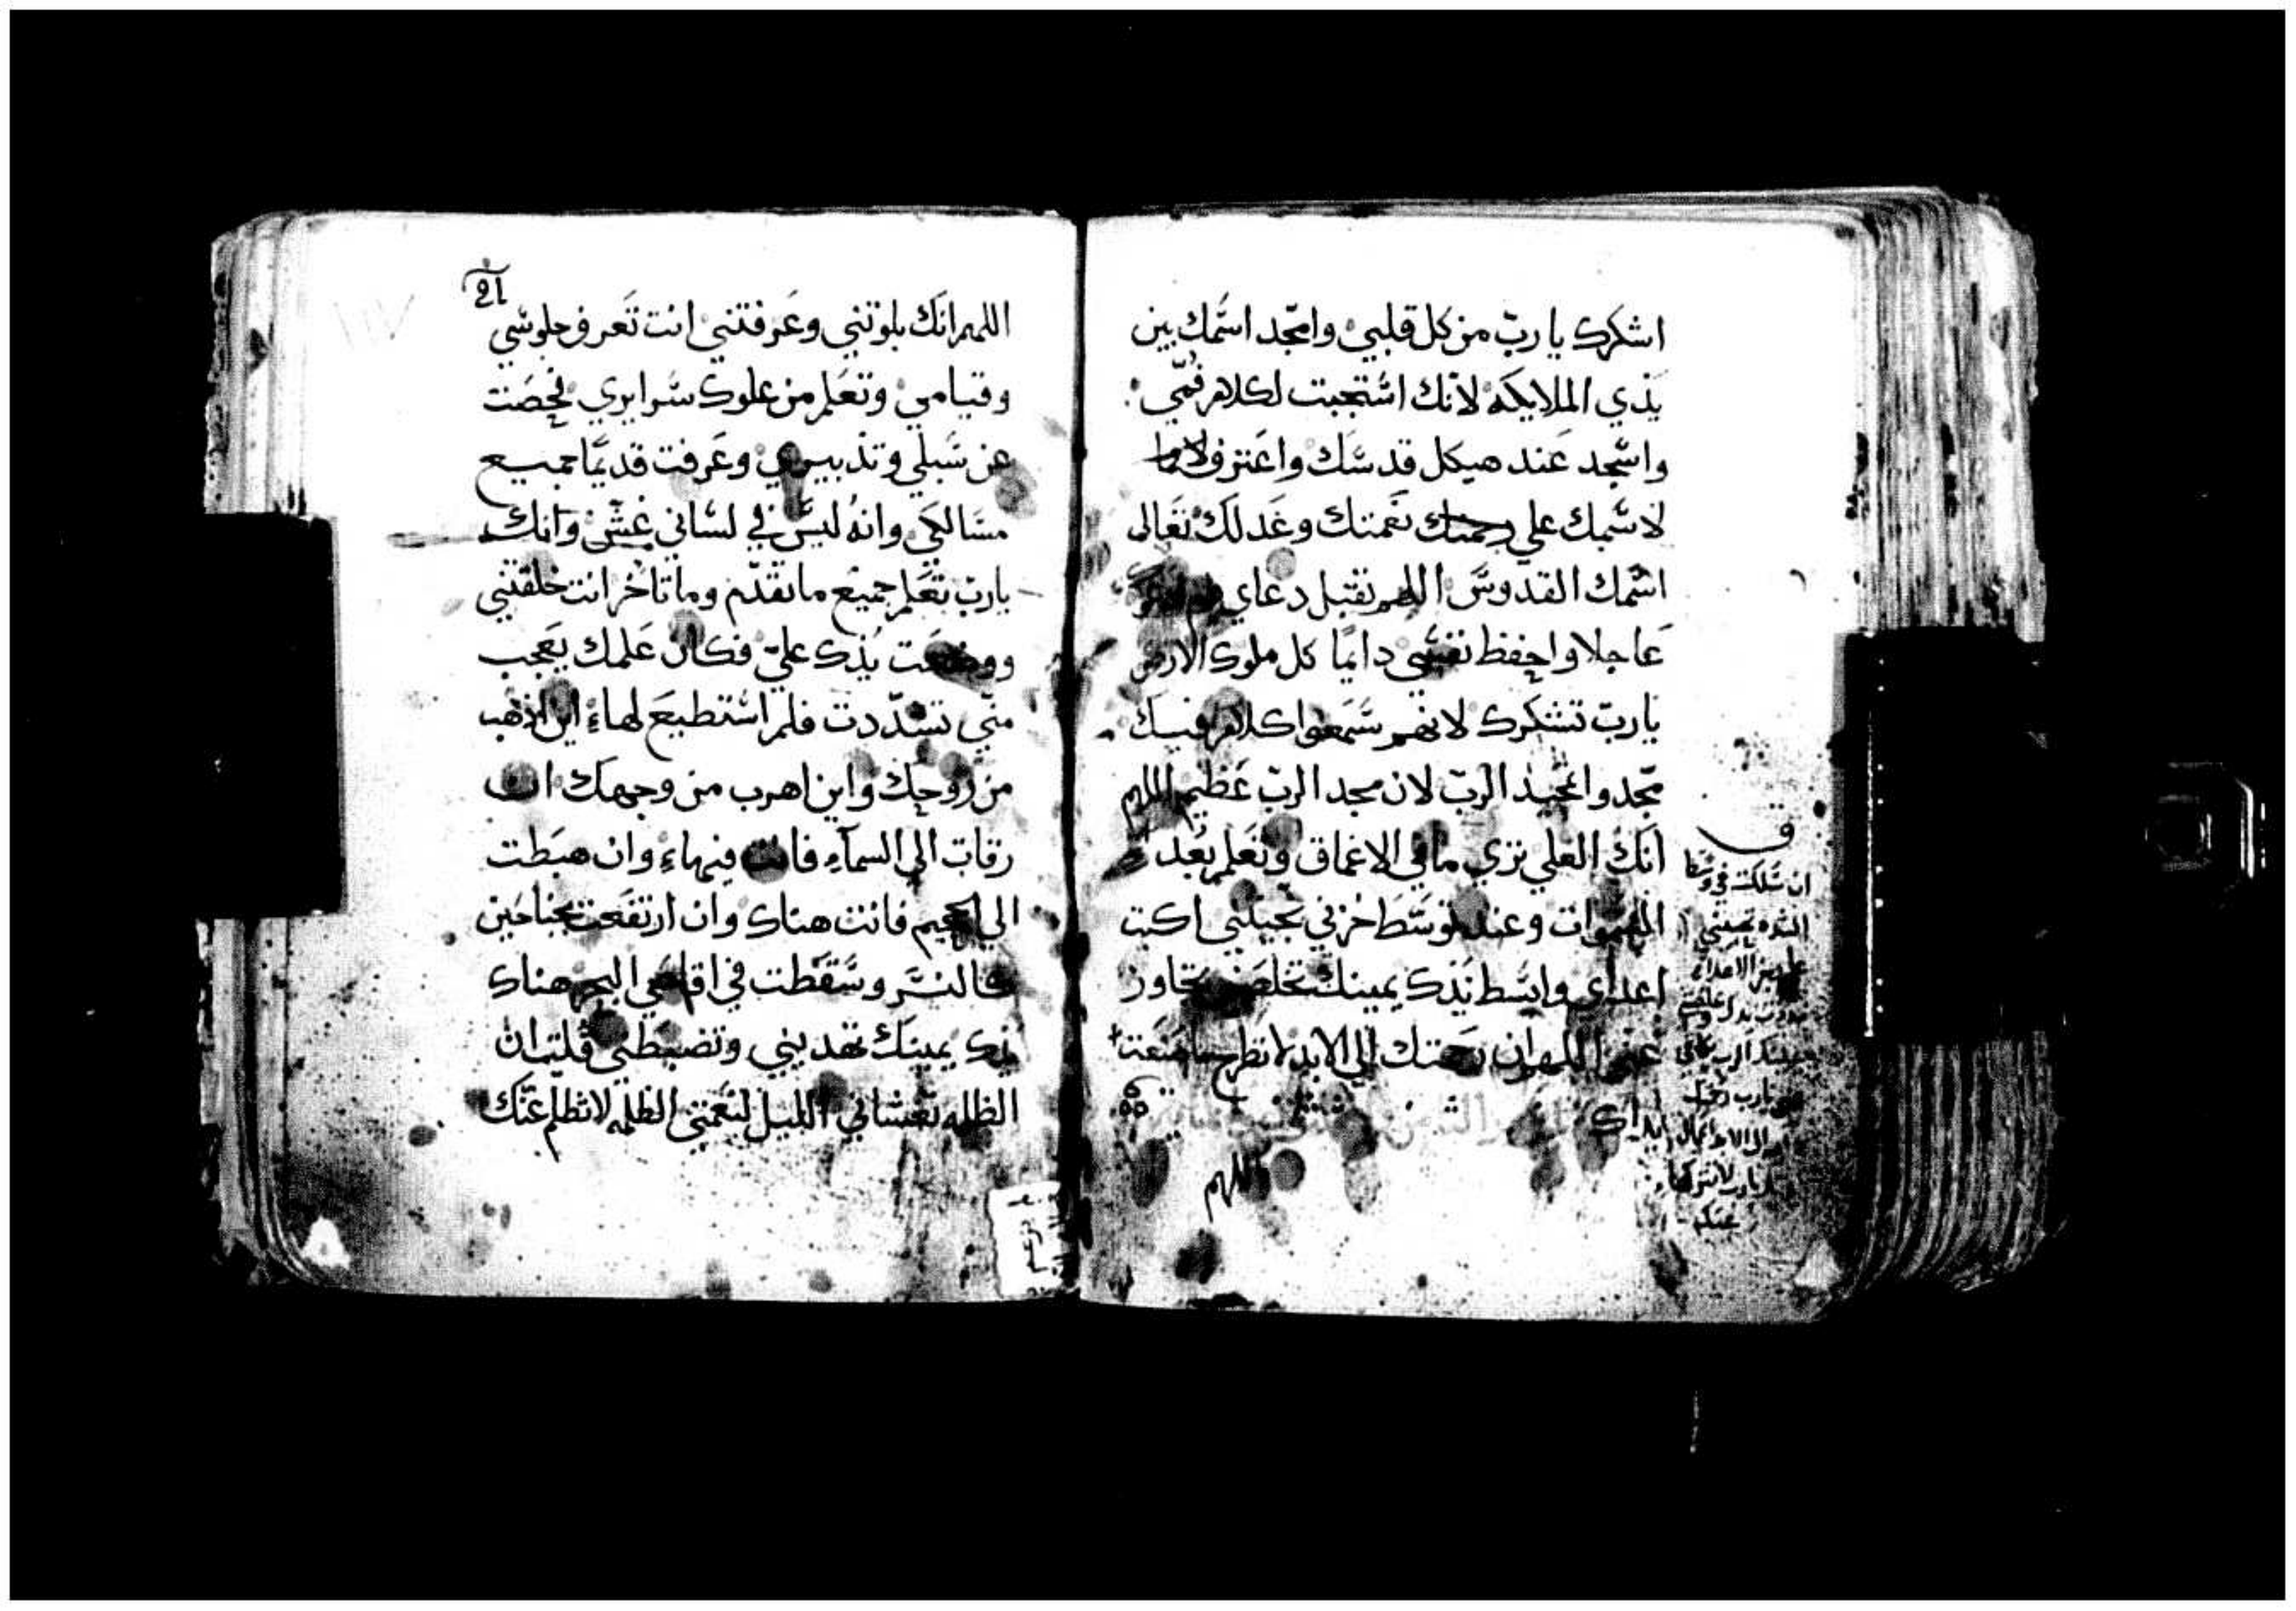 اشكرك يا ربّ من كل قلبي وامجّد اسمك بين
يدي الملايكه لانك استجبت لكلام فمّي
واسجد عند هيكل قدسك واعترف
لاسمك علي رحمتك نعمتك وعدلك تعالى
اسمك القدوس اللهم تقبل دعاي
عاجلا واحفظ نفسي دايمًا كل ملوك الارض
يا ربّ تشكرك لانهم سمعوا كلام فيك
مجّدوا عبيد الربّ لان مجد الربّ عظيم اللهم
انك العلي ترى ما في الاعماق وتعلم بعد
وعند توسط حزني تحييني اكبت
اعداي وابسط يدك يمينك تخلصني تجاوز
عني اللهم ان رحمتك الي الابد لا تطرح ما صنعت
يداك
اللهم
ق
ان سلكت في وسط
الشده تحييني
علي رجز الاعداء
مددت يدك
يمينك الرب
يا رب رحمتك
الي الابد اعمال
يديك يا رب لا تتركها
اللهم انك بلوتني وعرفتني انت تعرف جلوسي
وقيامي وتعلم من علوك سرايري فحصت
عن سبلي وتدبيري وعرفت قديمًا جميع
مسالكي وانه ليس في لساني غش وانك
يا ربّ تعلم جميع ما تقدّم وما تاخر انت خلقتني
ووضعت يدك عليّ فكان علمك يعجب
منّي تشدّدت فلم استطيع لهاء اين اذهب
من روحك واين اهرب من وجهك ان
رقات الي السمآء فانت فيهاء وان هبطت
الي الجحيم فانت هناك وان ارتفعت بجناحين
كالنسر وسقطت في اقاصي البحر هناك
يدك يمينك تهديني وتضبطني قلت ان
الظلمه تغشاني الليل لنعمتي الظلمه لا تظلم عنك